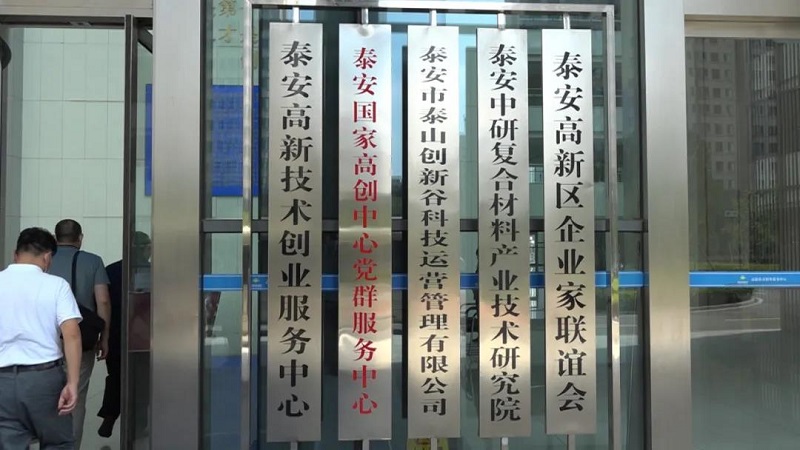 泰安高新技术创业服务中心
泰安国家高创中心党群服务中心
泰安市泰山创新谷科技运营管理有限公司
泰安中研复合材料产业技术研究院
泰安高新区企业家联谊会